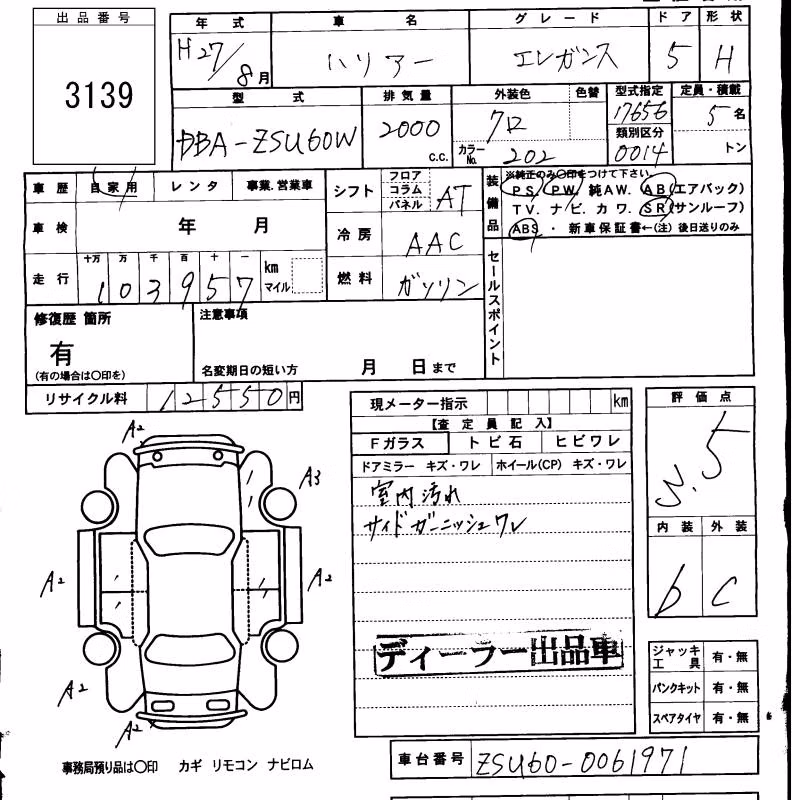 出品番号
3139
年式 車名 グレード ドア 形状
H27/8月 ハリアー エレガンス 5 H
型式 排気量 外装色 色替 型式指定 定員・積載
DBA-ZSU60W 2000 c.c. クロ 17656 5名
カラーNo. 202 類別区分 0014 トン
車歴 自家用 レンタ 事業.営業車
車検 年 月
走行 十万 万 千 百 十 一 km マイル
1 0 3 9 5 7
シフト フロア コラム パネル AT
冷房 AAC
燃料 ガソリン
装備品 ※純正のみ〇印をつけて下さい。
PS. PW. 純AW. AB(エアバック)
TV. ナビ. カワ. SR(サンルーフ)
ABS ・ 新車保証書←(注)後日送りのみ
セールスポイント
修復歴 箇所
有
(有の場合は〇印を)
注意事項
名変期日の短い方 月 日まで
リサイクル料 12550円
現メーター指示 km
【査定員記入】
Fガラス トビ石 ヒビワレ
ドアミラー キズ・ワレ ホイール(CP) キズ・ワレ
室内汚れ
サイドガーニッシュワレ
ディーラー出品車
評価点
内装 外装
b C
ジャッキ工具 有・無
パンクキット 有・無
スペアタイヤ 有・無
A2
A3
A2 A2
A2
A2
事務局預り品は〇印 カギ リモコン ナビロム
車台番号 ZSU60-0061971